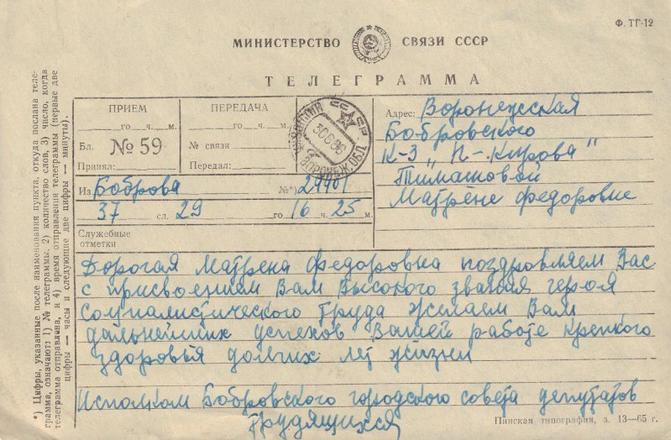 Ф. ТГ-12
МИНИСТЕРСТВО СВЯЗИ СССР
ТЕЛЕГРАММА
ПРИЕМ
го ч. м.
Бл. № 59
Принял:
ПЕРЕДАЧА
го ч. м.
№ связи
Передал:
Адрес: Воронежская
Бобровского
К-з „ Кирова"
Тимашовой
Матрёне Федоровне
Из Боброва №*)
37 сл. 29 го 16 ч. 25 м.
Служебные
отметки
Дорогая Матрена Федоровна поздровляем Вас
с присвоением Вам Высокого звания героя
социалистического Труда желаем Вам
дальнейших успехов Вашей работе крепкого
здоровья долгих лет жизни
Исполком Бобровского городского совета депутатов
трудящихся
Пинская типография, з. 13—65 г.
*) Цифры, указанные после наименования пункта, откуда послана теле-
грамма, означают: 1) № телеграммы, 2) количество слов, 3) число, когда
телеграмма отправлена, и 4) время отправления телеграммы (первые две
цифры — часы и следующие две цифры — минуты).